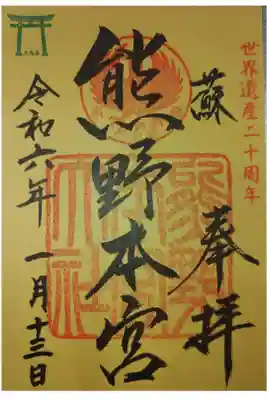 世界遺産二十周年
蘇
奉拝
熊野本宮
令和六年
一月十三日